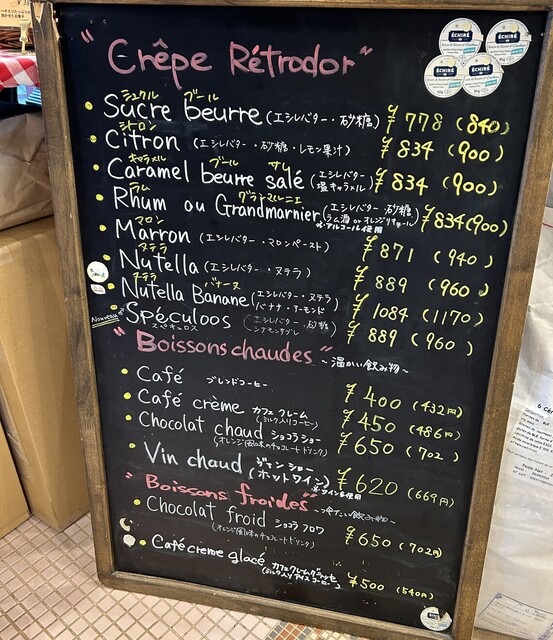 "Crêpe Rétrodor"
シュクル ブール
Sucre beurre (エシレバター・砂糖) ¥778 (840)
シトロン
Citron (エシレバター・砂糖・レモン果汁) ¥834 (900)
キャラメル ブール サレ
Caramel beurre salé (エシレバター 塩キャラメル) ¥834 (900)
ラム グランマルニエ
Rhum ou Grandmarnier (エシレバター・砂糖 ラム酒 or オレンジリキュール) ¥834 (900)
※アルコール使用
マロン
Marron (エシレバター・マロンペースト) ¥871 (940)
ヌテラ
Nutella (エシレバター・ヌテラ) ¥889 (960)
ヌテラ バナーヌ
Nutella Banane (エシレバター・ヌテラ バナナ・アーモンド) ¥1084 (1170)
Nouveau
Spéculoos (エシレバター・砂糖) ¥889 (960)
スペキュロス
"Boissons chaudes" ～温かい飲み物～
Café ブレンドコーヒー ¥400 (432円)
Café crème カフェ クレーム (ミルク入りコーヒー) ¥450 (486円)
Chocolat chaud ショコラ ショー (オレンジ風味のチョコレートドリンク) ¥650 (702)
Vin chaud ヴァン ショー (ホットワイン) ¥620 (669円)
※ワイン使用
"Boissons froides" ～冷たい飲み物～
Chocolat froid ショコラ フロワ (オレンジ風味のチョコレートドリンク) ¥650 (702円)
Café crème glacé カフェクレームグラッセ (ミルク入りアイスコーヒー) ¥500 (540円)
ÉCHIRÉ
ÉCHIRÉ
ÉCHIRÉ
ÉCHIRÉ